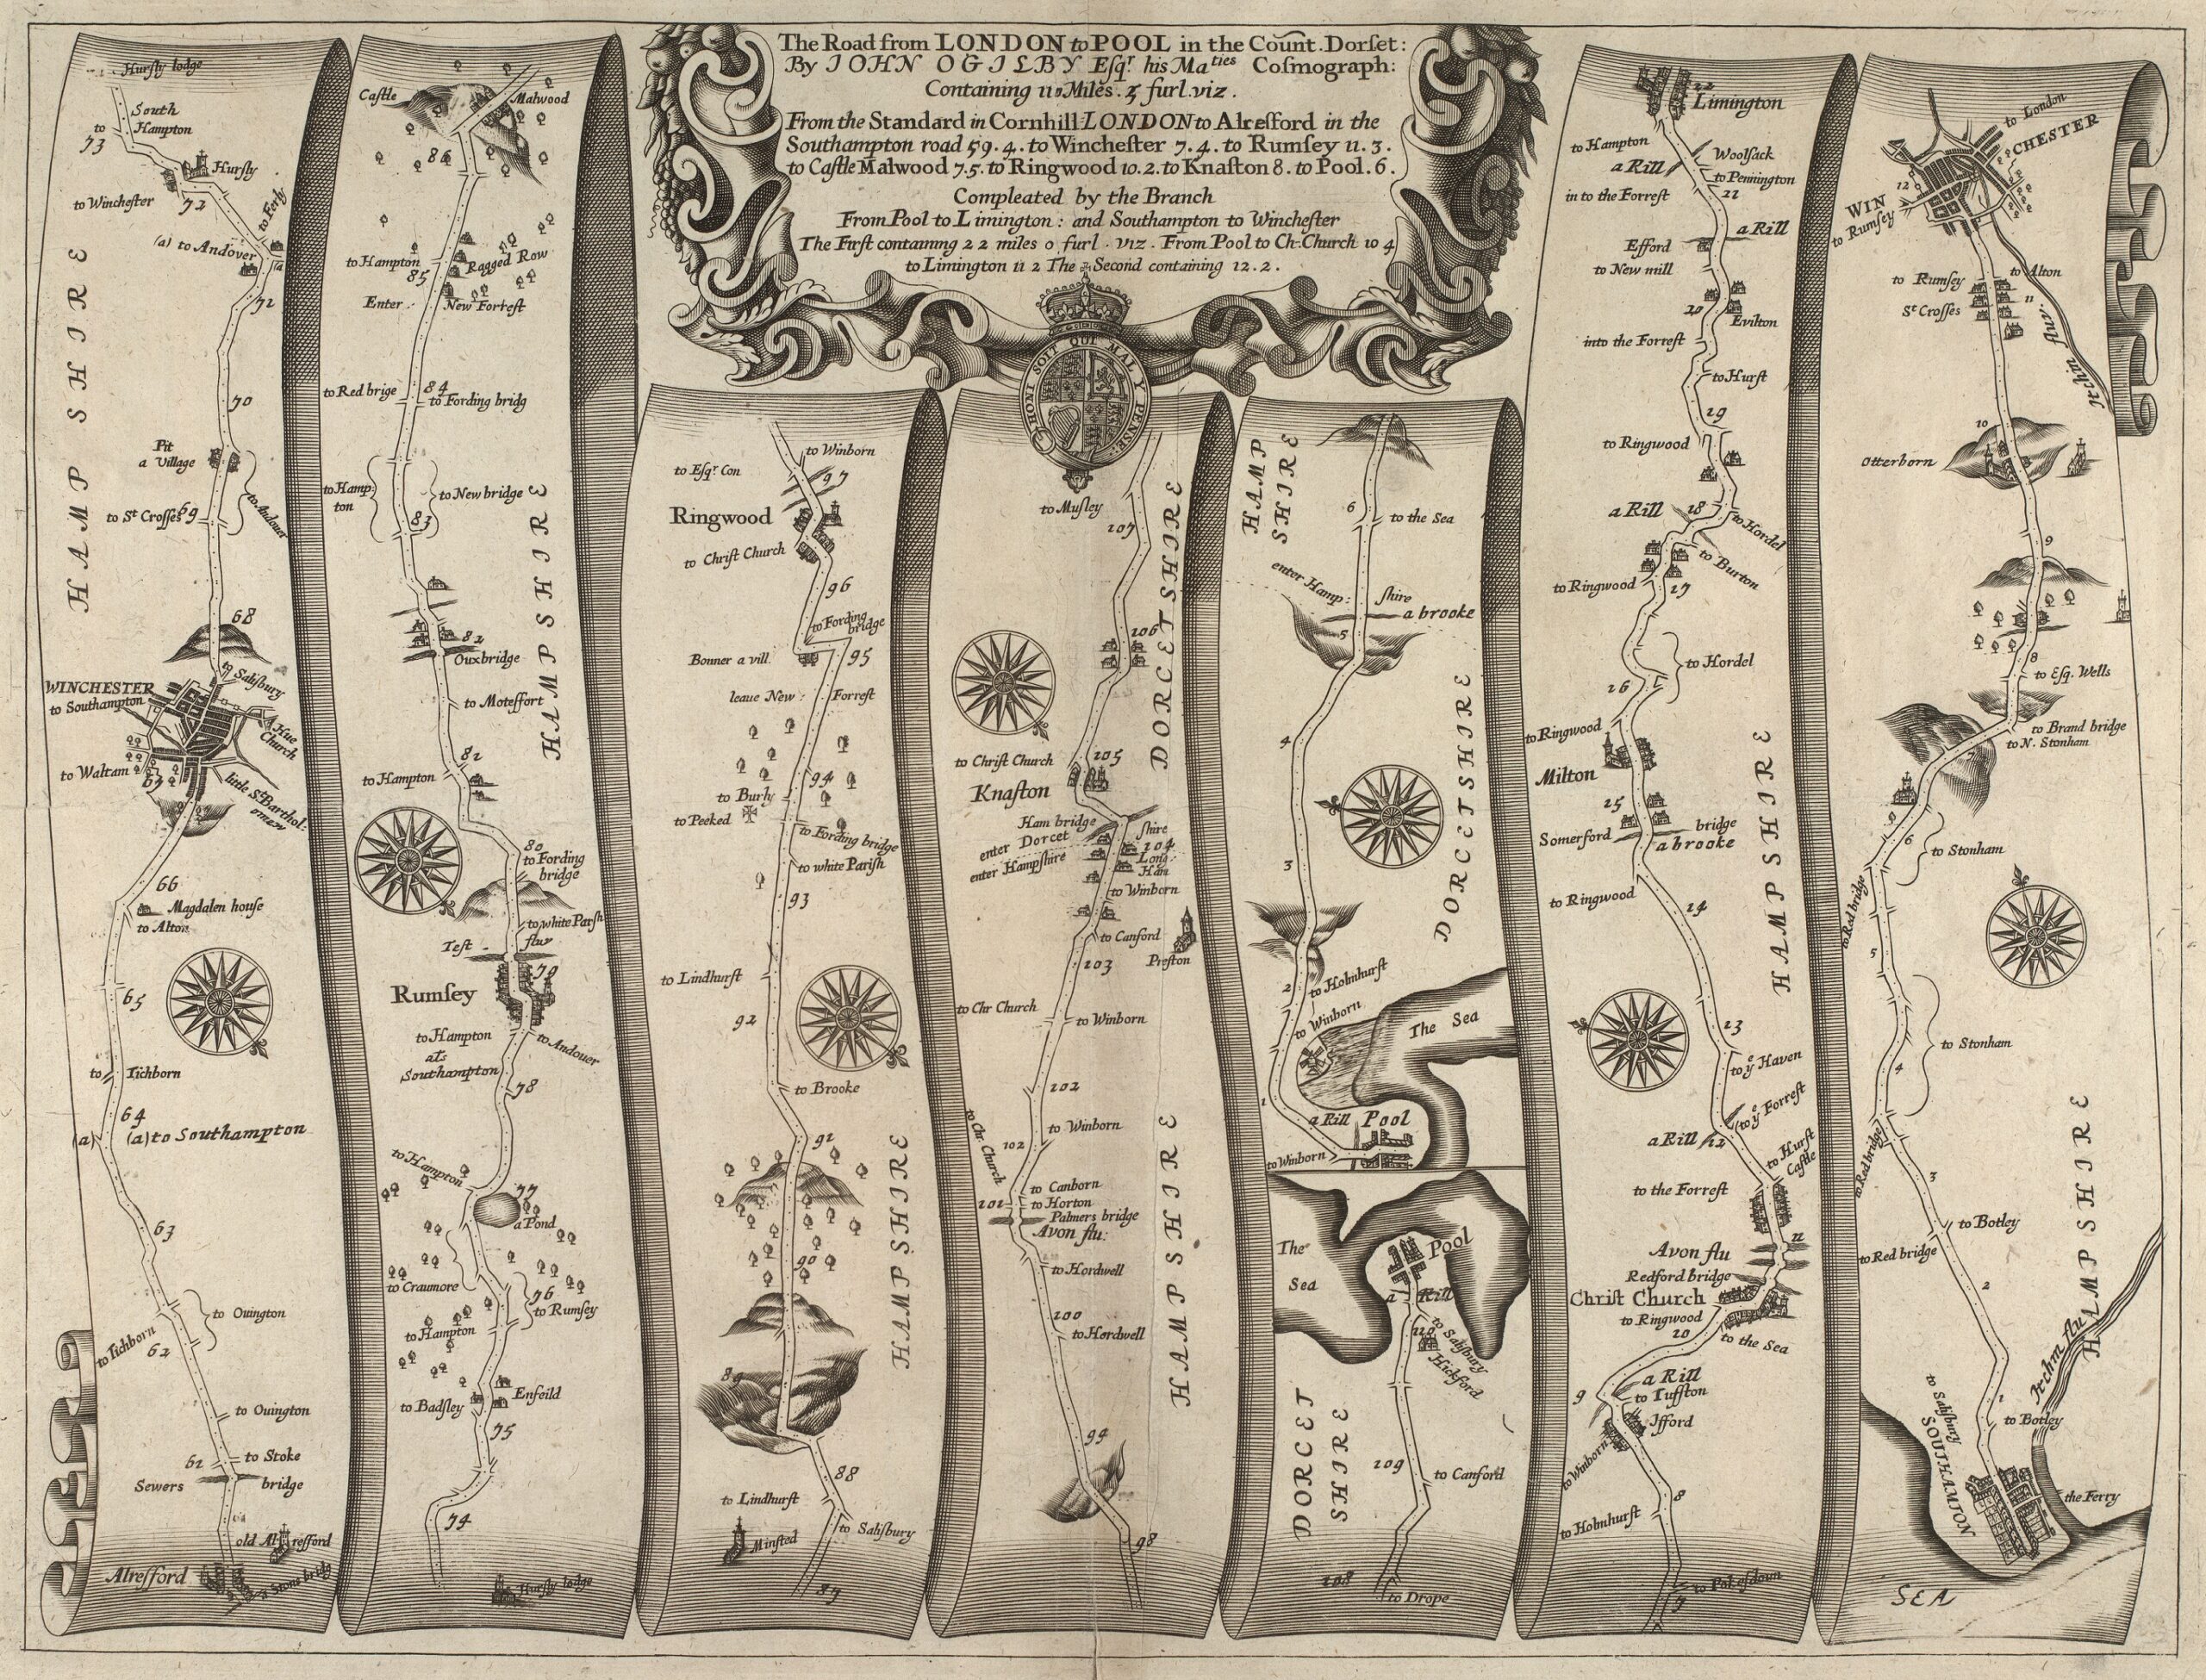 The Road from LONDON to POOL in the Count. Dorſet:
By IOHN OGILBY Eſqʳ. his Maᵗⁱᵉˢ Coſmograph:
Containing 110 Miles. 5 furl. viz.
From the Standard in Cornhill LONDON to Alreſford in the
Southampton road 59. 4. to Wincheſter 7. 4. to Rumſey 11. 3.
to Caſtle Malwood 7. 5. to Ringwood 10. 2. to Knaſton 8. to Pool. 6.
Compleated by the Branch
From Pool to Limington: and Southampton to Wincheſter
The Firſt containing 22 miles 0 furl. viz. From Pool to Ch. Church 10 4
to Limington 11 2 The Second containing 12. 2.
HONI SOIT QUI MAL Y PENSE
Hurſly lodge
South
Hampton
to
73
Hurſly
to Wincheſter
72
to Ferly
(a) to Andover
(a
71
HAMP SHIRE
70
Pit
a village
to Sᵗ Croſſes
69
to Andover
68
to Saliſbury
WINCHESTER
to Southampton
A Hue
Church
to Waltam
67
little Sᵗ Barthol:
omew
66
Magdalen houſe
to Alton
65
to Tichborn
64
(a)
(a) to Southampton
63
to Ouington
to Tichborn
62
to Ouington
61
to Stoke
Sewers
bridge
old Alrefford
Alreſford
a Stone bridg
Caſtle
Malwood
86
to Hampton
85
Ragged Row
Enter
New Forreſt
to Red brige
84
to Fording bridg
to Hamp
ton
to New bridge
83
HAMP SHIRE
82
Ouxbridge
to Moteſfort
81
to Hampton
80
to Fording
bridge
to white Parſh
Teſt
fluv
79
Rumſey
to Hampton
als
Southampton
to Andouer
78
to Hampton
77
a Pond
to Craumore
76
to Rumſey
to Hampton
Enfeild
to Badſley
75
74
Hurſly lodge
to Winborn
to Eſqʳ Con
97
Ringwood
to Chriſt Church
96
to Fording
bridge
Bonner a vill.
95
leaue New
Forreſt
94
to Burly
to Peeked
to Fording bridge
to white Pariſh
93
to Lindhurſt
92
to Brooke
91
90
HAMPSHIRE
89
88
to Lindhurſt
to Saliſbury
Minſted
87
to Muſley
107
DORCET SHIRE
106
to Chriſt Church
105
Knaſton
Ham bridge
enter Dorcet
ſhire
104
enter Hampſhire
Long
Ham
to Winborn
to Canford
Preſton
103
to Chr Church
to Winborn
102
to Winborn
102
to Chr. Church
to Canborn
101
to Horton
Palmers bridge
Avon flu:
to Hordwell
HAMP SHIRE
100
to Hordwell
99
98
HAMP
SHIRE
6
to the Sea
enter Hamp:
ſhire
a brooke
5
4
DORCETSHIRE
3
2
to Holmhurſt
to Winborn
The Sea
1
a Rill
Pool
to Winborn
The
Sea
Pool
a Rill
110
to Saliſbury
Hickford
DORCET
SHIRE
109
to Canford
108
to Drope
22
Limington
to Hampton
a Rill
Woolſack
to Pennington
in to the Forreſt
21
a Rill
Efford
to New mill
20
Evilton
into the Forreſt
to Hurſt
19
to Ringwood
a Rill
18
to Hordel
to Burton
to Ringwood
17
to Hordel
16
to Ringwood
Milton
15
Somerford
bridge
a brooke
HAMP SHIRE
to Ringwood
14
13
to yᵉ Haven
to yᵉ Forreſt
a Rill
12
to Hurſt
Caſtle
to the Forreſt
11
Avon flu
Redford bridge
Chriſt Church
to Ringwood
10
to the Sea
a Rill
9
to Tuffton
Ifford
to Winborn
8
to Holmhurſt
to Pokeſdown
7
to London
WIN
CHESTER
12
to Rumſey
to Alton
to Rumſey
11
Sᵗ Croſſes
Itchin fluv:
10
Otterborn
9
8
to Eſq. Wells
to Brand bridge
to N. Stonham
7
6
to Stonham
to Red bridge
5
to Stonham
4
to Red bridge
3
to Botley
to Red bridge
2
HAMPSHIRE
Itchin flu
1
to Botley
to Saliſbury
SOUTHAMTON
the Ferry
SEA